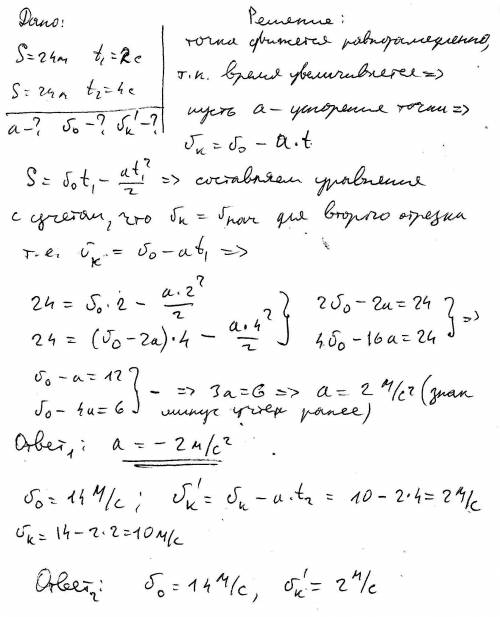 Дано:
S=24м t₁=2с
S=24м t₂=4с
a-? v₀-? vₖ'-?
Решение:
точка движется равнозамедленно,
т.к. время увеличивается =>
пусть a - ускорение точки =>
vₖ = v₀ - a.t
S = v₀t₁ - at₁²/2 => составляем уравнения
с учетом, что vₖ = vнач для второго отрезка
т.е. vₖ = v₀ - at₁ =>
24 = v₀·2 - a·2²/2 } 2v₀ - 2a = 24 } =>
24 = (v₀-2a)·4 - a·4²/2 } 4v₀ - 16a = 24
v₀ - a = 12 } - => 3a = 6 => a = 2 м/с² (знак
v₀ - 4a = 6 минус учтен ранее)
Ответ₁: a = -2м/с²
v₀ = 14 м/с; vₖ' = vₖ - a.t₂ = 10 - 2·4 = 2м/с
vₖ = 14 - 2·2 = 10м/с
Ответ₂: v₀ = 14 м/с, vₖ' = 2 м/с